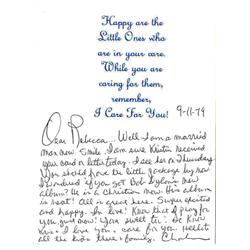 Happy are the
Little Ones who
are in your care.
While you are
caring for them,
remember,
I Care For You!
9-11-79
Dear Rebecca, Well I am a married
man now. Smile. I am sure Kristin received
you card & letter today. I see her on Thursday.
You should have the little package by now
I wondered if you got Bob Dylan's new
album? He is a Christian now. His album
is neat! All is great here. Super excited
and happy. In love! Know that I pray for
you just now! You sweet
I love you, care for you. Hello to
all the kids there & family.